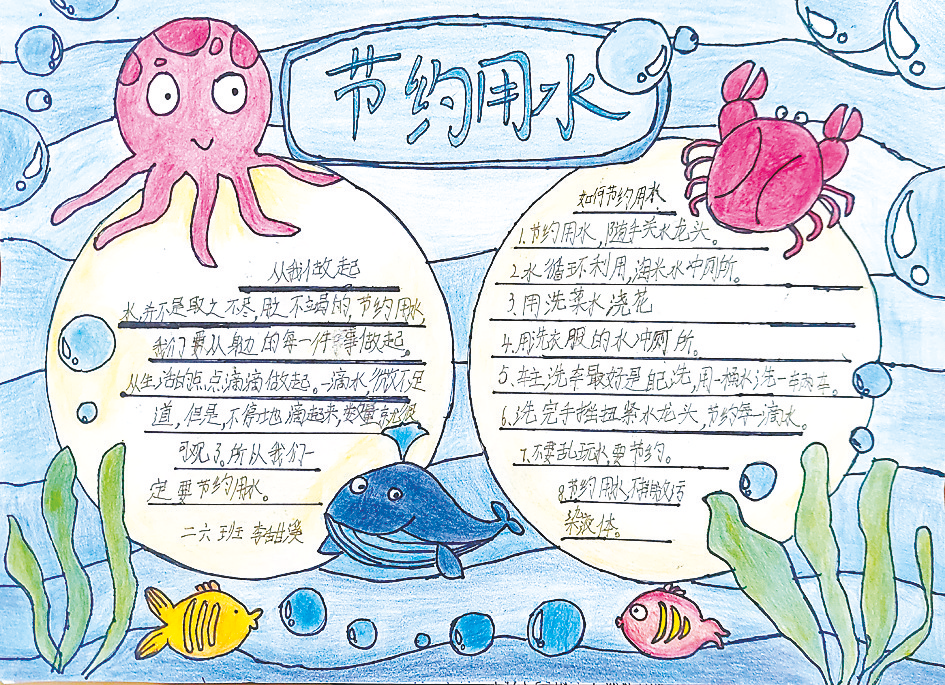 节约用水
从我们做起
水,并不是取之不尽,用之不竭的,节约用水
我们要从身边的每一件事做起。
从生活的点点滴滴做起。一滴水,微不足
道,但是,不停地滴起来,数量就很
可观了。所以我们一
定要节约用水。
二六班 李甜溪
如何节约用水
1.节约用水,随手关水龙头。
2.水循环利用,淘米水冲厕所。
3.用洗菜水浇花
4.用洗衣服的水冲厕所。
5、车主洗车最好是自己洗,用一桶水洗一辆车。
6.洗完手拧紧水龙头,节约每一滴水。
7.不要乱玩水,要节约。
8.节约用水,不排放污
染液体。